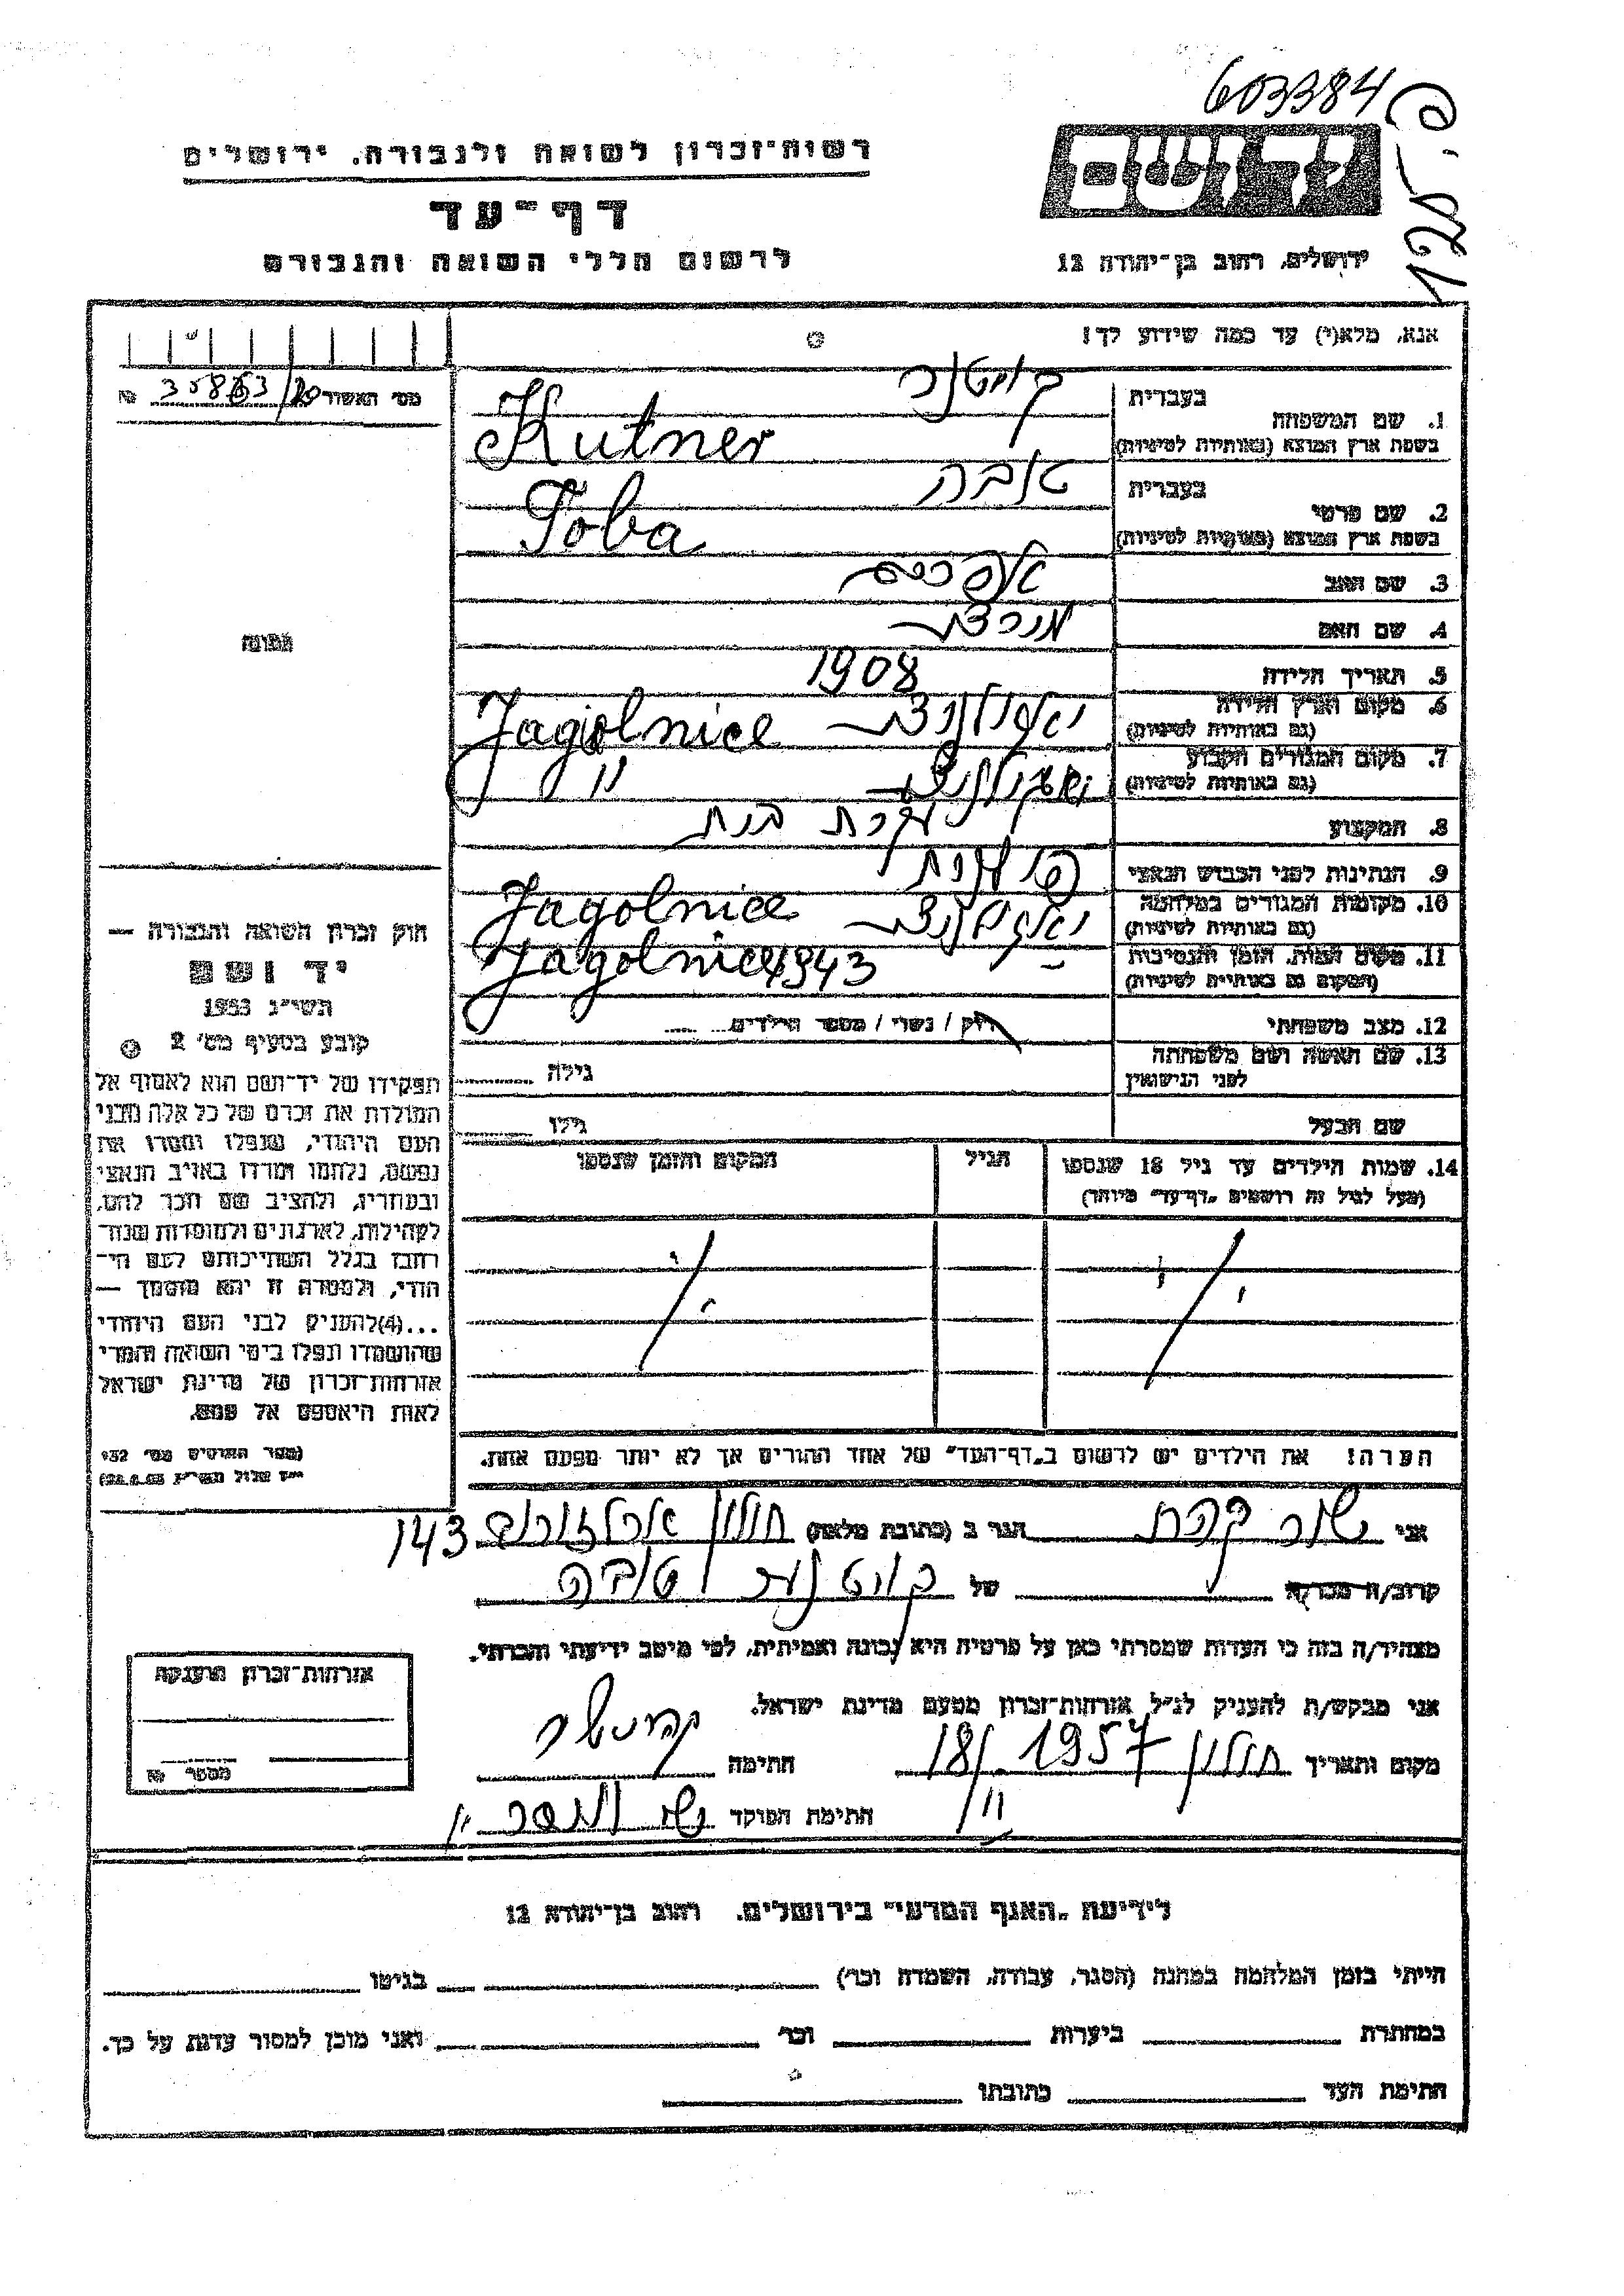 603384
רשות-זכרון לשואה ולגבורה, ירושלים
דף-עד
לרשום חללי השואה והגבורה
ירושלים, רחוב בן-יהודה 12
אנא, מלא(י) עד כמה שידוע לך!
מס' האשור
1. שם המשפחה
בעברית קוטנר
בשפת ארץ המוצא (באותיות לטיניות) Kutner
2. שם פרטי
בעברית טובה
בשפת ארץ המוצא (באותיות לטיניות) Toba
3. שם האב אפרים
4. שם האם
5. תאריך הלידה 1908
6. מקום וארץ הלידה
(גם באותיות לטיניות) Jagolnice
7. מקום המגורים הקבוע
(גם באותיות לטיניות) "
8. המקצוע עקרת בית
9. הנתינות לפני הכבוש הנאצי פולנית
10. מקומות המגורים במלחמה
(גם באותיות לטיניות) Jagolnice
11. מקום המות, הזמן והנסיבות
(המקום גם באותיות לטיניות) Jagolnice 1943
12. מצב משפחתי רוק / נשוי / מספר הילדים
13. שם האשה ושם משפחתה
לפני הנישואין
גילה
שם הבעל
גילו
14. שמות הילדים עד גיל 18 שנספו
(מעל לגיל זה רושמים "דף-עד" מיוחד)
הגיל
המקום והזמן שנספו
הערה! את הילדים יש לרשום ב"דף-העד" של אחד ההורים אך לא יותר מפעם אחת.
תמונה
חוק זכרון השואה והגבורה —
יד ושם
תשי"ג 1953
קובע בסעיף מס' 2
תפקידו של יד-ושם הוא לאסוף אל
המולדת את זכרם של כל אלה מבני
העם היהודי, שנפלו ומסרו את
נפשם, נלחמו ומרדו באויב הנאצי
ובעוזריו, ולהציב שם וזכר להם,
לקהילות, לארגונים ולמוסדות שנח-
רבו בגלל השתייכותם לעם הי-
הודי, ולמטרה זו יהא מוסמך —
...(4) להעניק לבני העם היהודי
שהושמדו ונפלו בימי השואה והמרי
אזרחות-זכרון של מדינת ישראל
לאות היאספם אל עמם.
(ספר החוקים מס' 132
אני הגר ב (כתובת מלאה) חולון 143
קרוב/ה מכר/ה של קוטנר טובה
מצהיר/ה בזה כי העדות שמסרתי כאן על פרטיה היא נכונה ואמיתית, לפי מיטב ידיעתי והכרתי.
אני מבקש/ת להעניק לנ"ל אזרחות-זכרון מטעם מדינת ישראל.
מקום ותאריך חולון 1957 חתימה
חתימת הפוקד
אזרחות-זכרון מוענקת
מספר №
לידיעת "האגף המדעי" בירושלים, רחוב בן-יהודה 12
הייתי בזמן המלחמה במחנה (הסגר, עבודה, השמדה וכו') בגיטו
במחתרת ביערות וכו' ואני מוכן למסור עדות על כך.
חתימת העד כתובתו